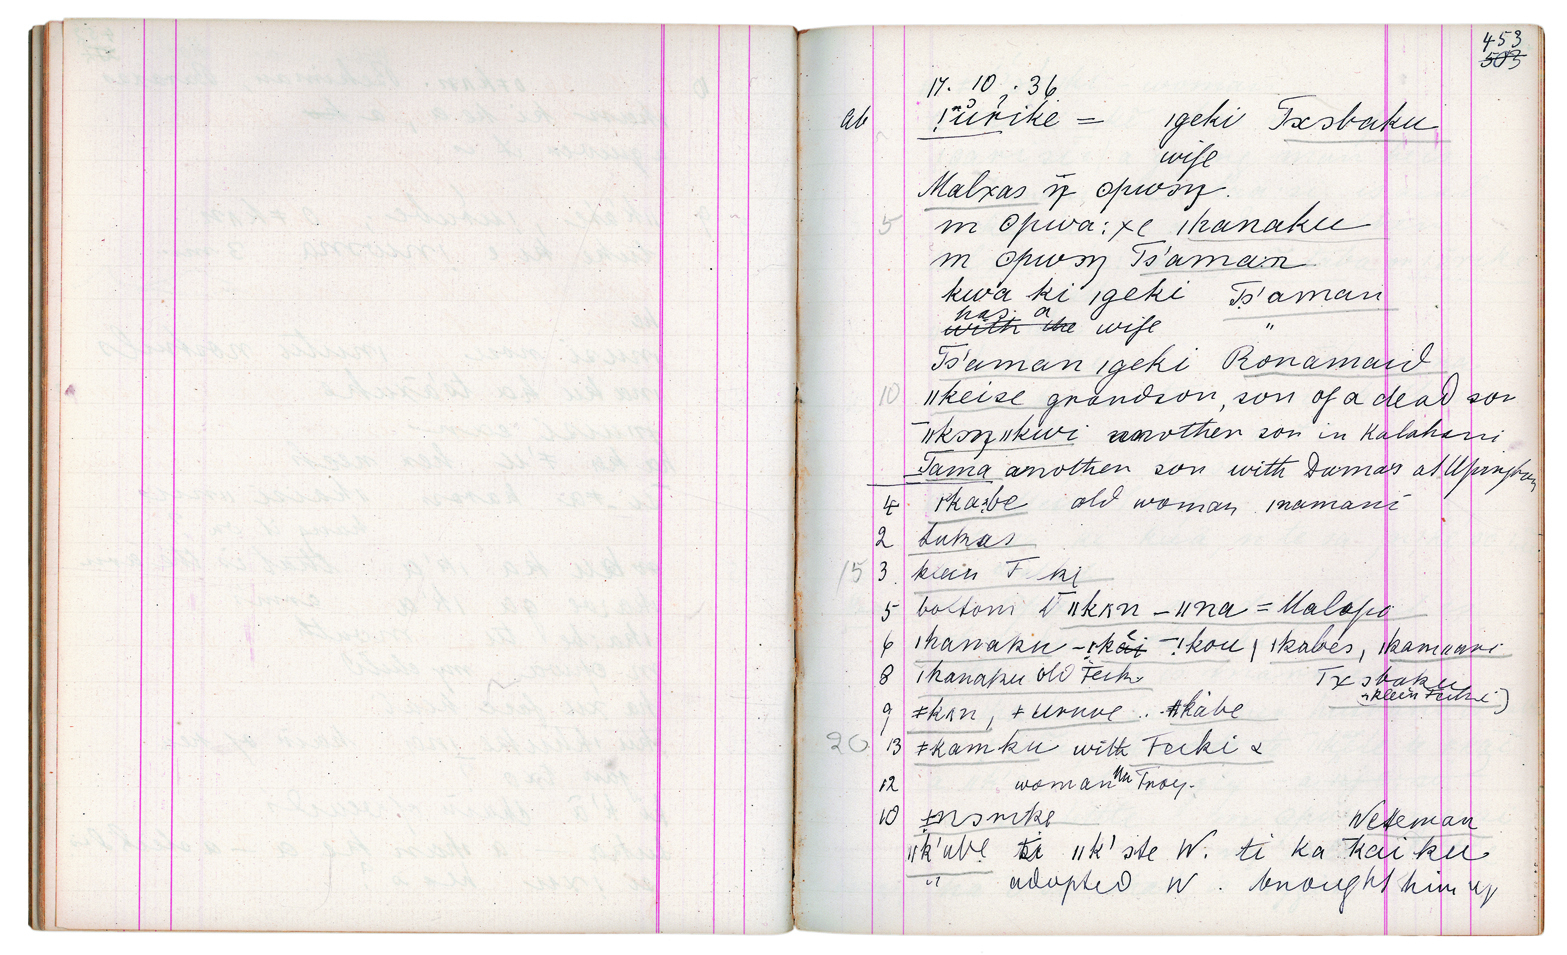 453
503
17. 10. 36
ab ǃu̇rike = ǀgeki Txɔbaku
wife
Malxas ŋ̄ ɔpwɔŋ.
5 m ɔpwa:xe ǀhanaku
m ɔpwɔŋ Ts'aman
kwa ki ǀgeki Ts'aman
has a
with the wife "
Ts'aman ǀgeki Ronamaid
10 ǁkeise grandson, son of a dead son
ǁkɔŋǁkwi another son in Kalahari
Tama another son with Damas at Upington
4 ǀkaːbe old woman ǀnamani
2 Lukas
15 3. klein F ki
5 bottom ǁkɜn - ǁna = Malapo
6 ǀhanaku - ǀkãi - ǃkou, ǀkabes, ǀkamaani
8 ǀhanaku old Feiki Txɔbaku
klein Feiki)
9 ǂkɜn, ǂuruve. ǂkābe
20 13 ǂkamku with Feiki &
12 woman Troy.
10 ǂnɔrike Neteman
ǁk'ube ti ǁk'ɔte N. ti ka kai ku
" adopted N. brought him up